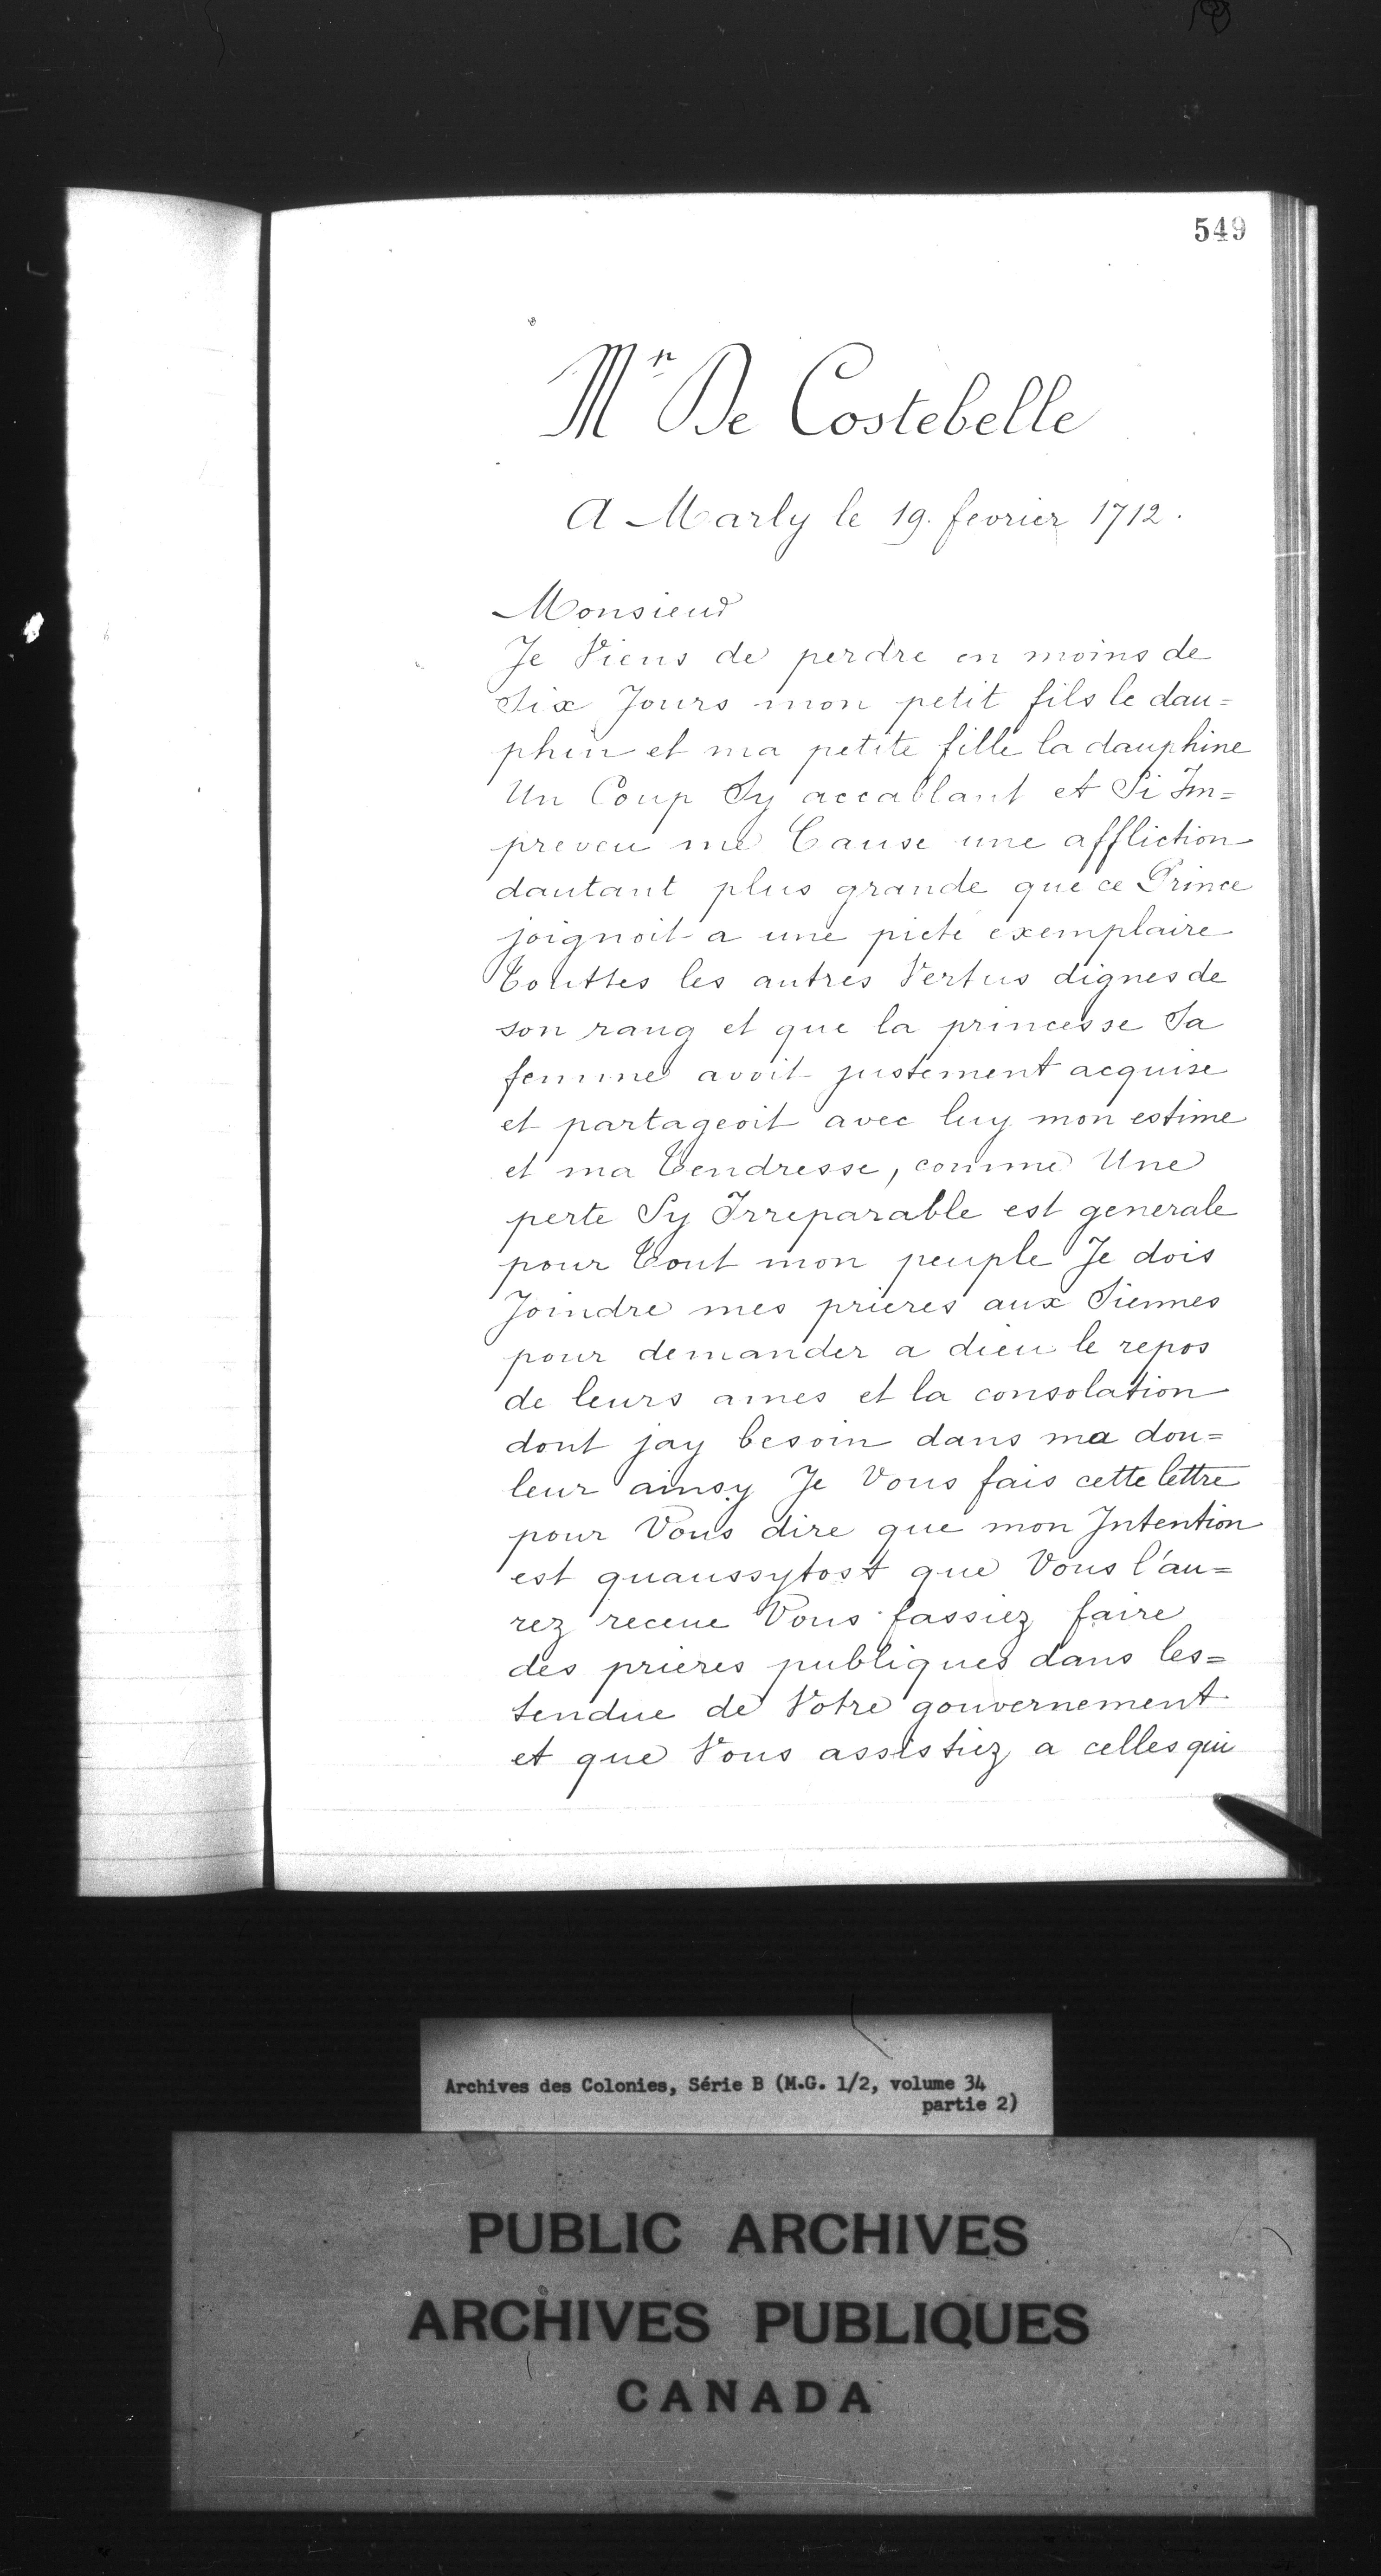 549
Mr De Costebelle
A Marly le 19. fevrier 1712.
Monsieur
Je Viens de perdre en moins de
Six Jours mon petit fils le dau=
phin et ma petite fille la dauphine
Un Coup Sy accablant et Si Im=
preveu me Cause une affliction
dautant plus grande que ce Prince
joignoit a une pieté exemplaire
Touttes les autres Vertus dignes de
son rang et que la princesse Sa
femme avoit justement acquise
et partageoit avec luy mon estime
et ma Tendresse, comme Une
perte Sy Irreparable est generale
pour Tout mon peuple Je dois
Joindre mes prieres aux Siennes
pour demander a dieu le repos
de leurs ames et la consolation
dont jay besoin dans ma dou=
leur ainsy Je Vous fais cette lettre
pour Vous dire que mon Intention
est quaussytost que Vous l'au=
rez receue Vous fassiez faire
des prieres publiques dans les=
tendue de Votre gouvernement
et que Vous assistiez a celles qui
Archives des Colonies, Série B (M.G. 1/2, volume 34
partie 2)
PUBLIC ARCHIVES
ARCHIVES PUBLIQUES
CANADA